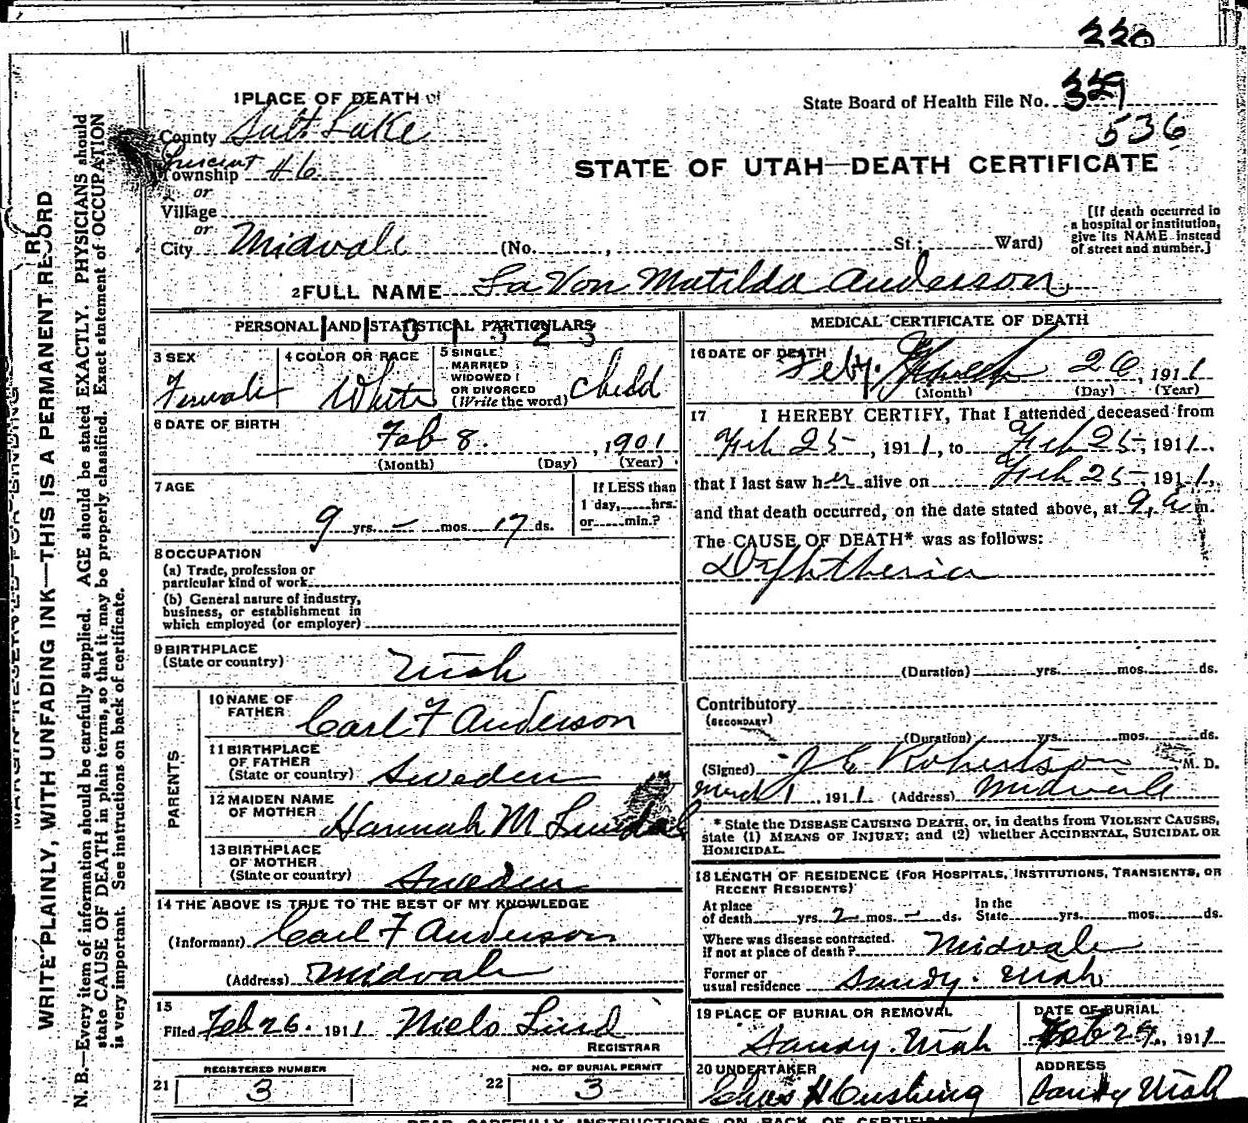 330
1 PLACE OF DEATH
State Board of Health File No. 329
536
County Salt Lake
Precinct
Township #6
or
Village
or
City Midvale (No. , St.; Ward)
STATE OF UTAH—DEATH CERTIFICATE
[If death occurred in
a hospital or institution,
give its NAME instead
of street and number.]
2 FULL NAME La Von Matilda Anderson
PERSONAL AND STATISTICAL PARTICULARS
1 1 0 1 3 2 3
3 SEX
Female
4 COLOR OR RACE
White
5 SINGLE
MARRIED
WIDOWED
OR DIVORCED
(Write the word) Child
6 DATE OF BIRTH
Feb 8. , 1901
(Month) (Day) (Year)
7 AGE
9 yrs. – mos. 17 ds.
If LESS than
1 day, hrs.
or min.?
8 OCCUPATION
(a) Trade, profession or
particular kind of work
(b) General nature of industry,
business, or establishment in
which employed (or employer)
9 BIRTHPLACE
(State or country)
Utah
PARENTS
10 NAME OF
FATHER
Carl F Anderson
11 BIRTHPLACE
OF FATHER
(State or country) Sweden
12 MAIDEN NAME
OF MOTHER
Hannah M
13 BIRTHPLACE
OF MOTHER
(State or country) Sweden
14 THE ABOVE IS TRUE TO THE BEST OF MY KNOWLEDGE
(Informant) Carl F Anderson
(Address) Midvale
15
Filed Feb 26. 1911 Niels Lind
REGISTRAR
REGISTERED NUMBER
21 3
NO. OF BURIAL PERMIT
22 3
MEDICAL CERTIFICATE OF DEATH
16 DATE OF DEATH
Feby. 26, 1911
(Month) (Day) (Year)
17 I HEREBY CERTIFY, That I attended deceased from
Feb 25, 1911, to Feb 25, 1911.
that I last saw her alive on Feb 25, 1911,
and that death occurred, on the date stated above, at 9, a m.
The CAUSE OF DEATH* was as follows:
Diphtheria
(Duration) yrs. mos. ds.
Contributory
(SECONDARY)
(Duration) yrs. mos. ds.
(Signed) J E Robertson M. D.
March 1, 1911. (Address) Midvale
* State the DISEASE CAUSING DEATH, or, in deaths from VIOLENT CAUSES,
state (1) MEANS OF INJURY; and (2) whether ACCIDENTAL, SUICIDAL OR
HOMICIDAL.
18 LENGTH OF RESIDENCE (FOR HOSPITALS, INSTITUTIONS, TRANSIENTS, OR
RECENT RESIDENTS)
At place
of death yrs. 2 mos. – ds.
In the
State yrs. mos. ds.
Where was disease contracted.
if not at place of death? Midvale
Former or
usual residence Sandy. Utah
19 PLACE OF BURIAL OR REMOVAL
Sandy. Utah
DATE OF BURIAL
Feb , 1911
20 UNDERTAKER
Chas H Cushing
ADDRESS
Sandy Utah
WRITE PLAINLY, WITH UNFADING INK—THIS IS A PERMANENT RECORD
N. B.—Every item of information should be carefully supplied. AGE should be stated EXACTLY. PHYSICIANS should
state CAUSE OF DEATH in plain terms, so that it may be properly classified. Exact statement of OCCUPATION
is very important. See instructions on back of certificate.
READ CAREFULLY INSTRUCTIONS ON BACK OF CERTIFICATE